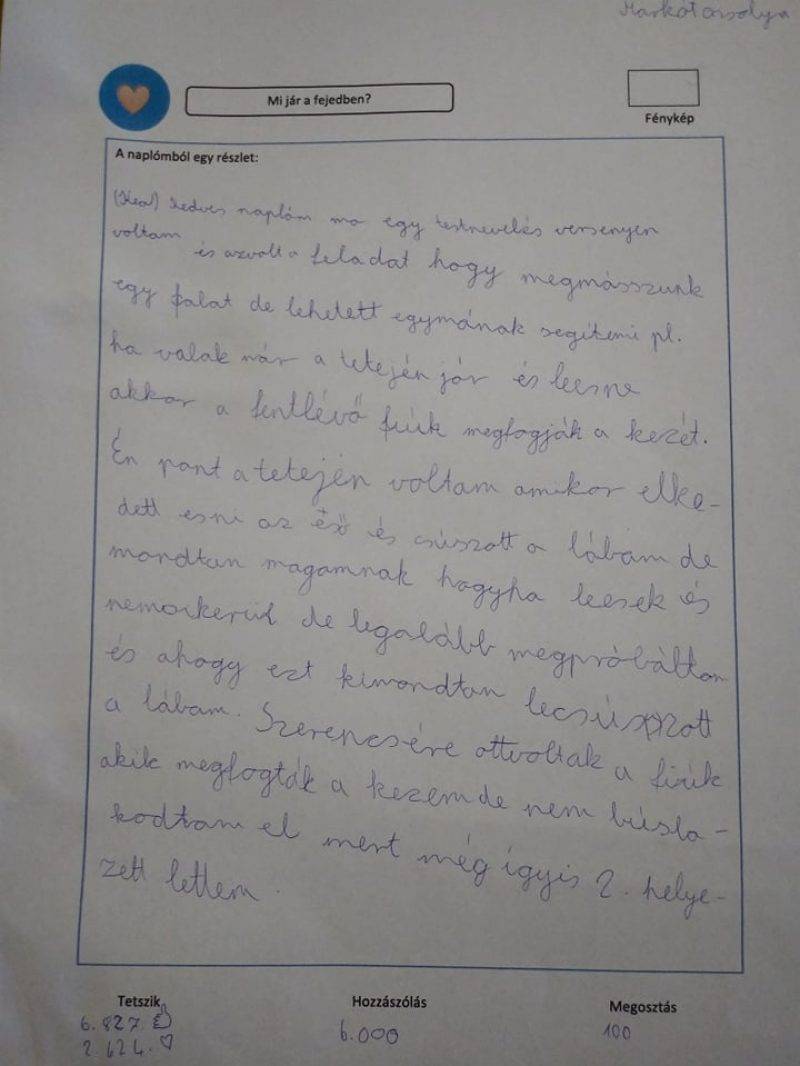 Markot Orsolya
Mi jár a fejedben?
Fénykép
A naplómból egy részlet:
Kedves naplóm ma egy testnevelés versenyen
voltam és azvolt a feladat hogy megmásszunk
egy falat de lehetett egymának segíteni pl.
ha valak már a tetején jár és leesne
akkor a fentlévő fiúk megfogják a kezét.
Én pont a tetején voltam amikor elke-
dett esni az eső és csúszott a lábam de
mondtam magamnak hogyha leesek és
nemsikerül de legalább megpróbáltam
és ahogy ezt kimondtam lecsúszott
a lábam. Szerencsére ottvoltak a fiúk
akik megfogták a kezem de nem búsla-
kodtam el mert még így is 2. helye-
zett lettem.
Tetszik Hozzászólás Megosztás
6.827 6.000 100
2.624.